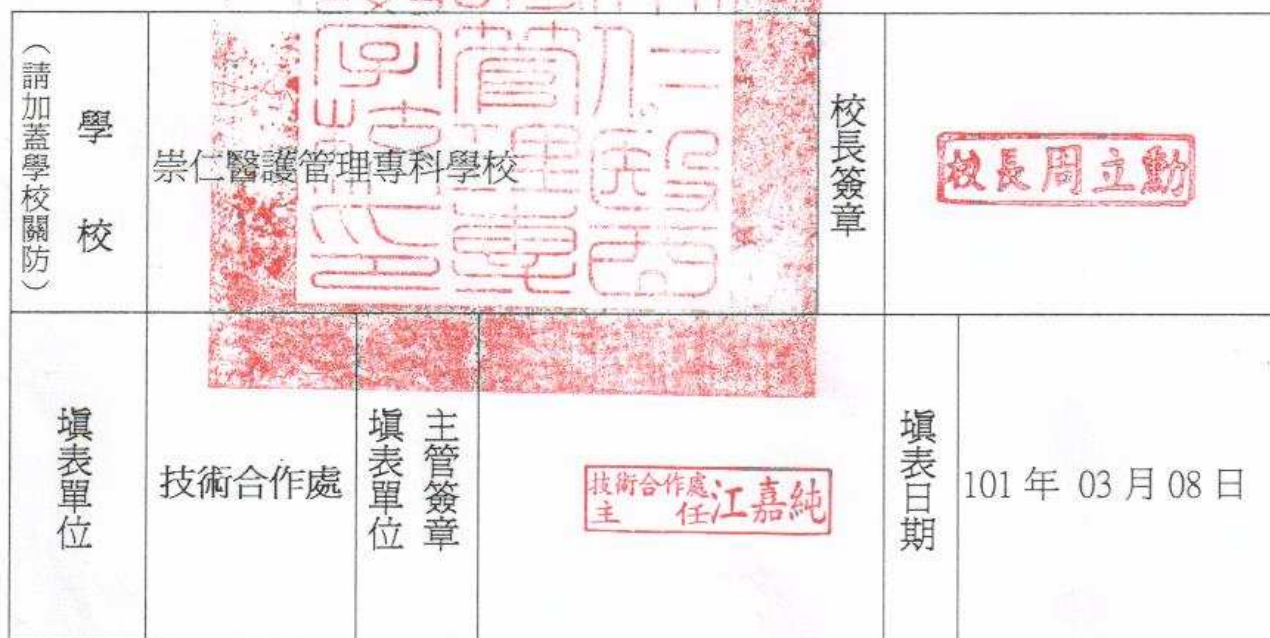 學校
（請加蓋學校關防）
崇仁醫護管理專科學校
校長簽章
校長周立勳
填表單位
技術合作處
填表單位
主管簽章
技術合作處
主任
江嘉純
填表日期
101 年 03 月 08 日